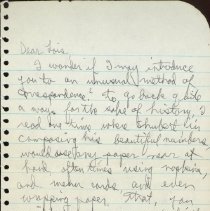 Dear Lois,
I wonder if I may introduce
you to an unusual method of
correspondence? to go back quite
a ways for the sake of history, I
read one time where Shubert in
composing his beautiful
would use any paper near at
hand often times using napkins,
and menu cards and even
wrapping paper. That, you